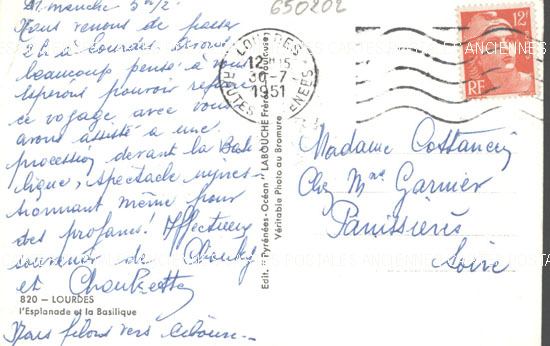 Dimanche 5h/2
Nous venons de passer
2h à Lourdes avons
beaucoup pensé à vous
espérons pouvoir refaire
ce voyage avec vous
avons assisté à une
procession devant la Basi
lique, spectacle impres
sionnant même pour
des profanes! Affectueux
souvenir de
et
820 — LOURDES
l'Esplanade et la Basilique
Nous filons vers
650202
LOURDES
12H15
30-7
1951
HAUTES PYRENEES
12F
RF
Edit. "Pyrénées-Océan" LABOUCHE Frères, Toulouse
Véritable Photo au Bromure
Madame
Chez Mme Garnier
Panissières
Loire
CARTES POSTALES ANCIENNES